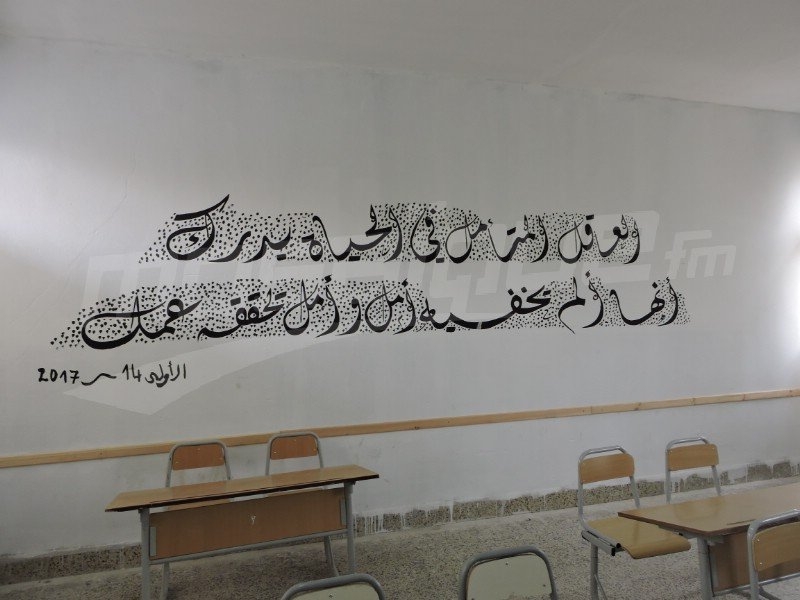 العاقل المتأمل في الحياة يدرك
أنها ألم يخفيه أمل وأمل يحققه عمل
الأولى 14 س 2017
fm